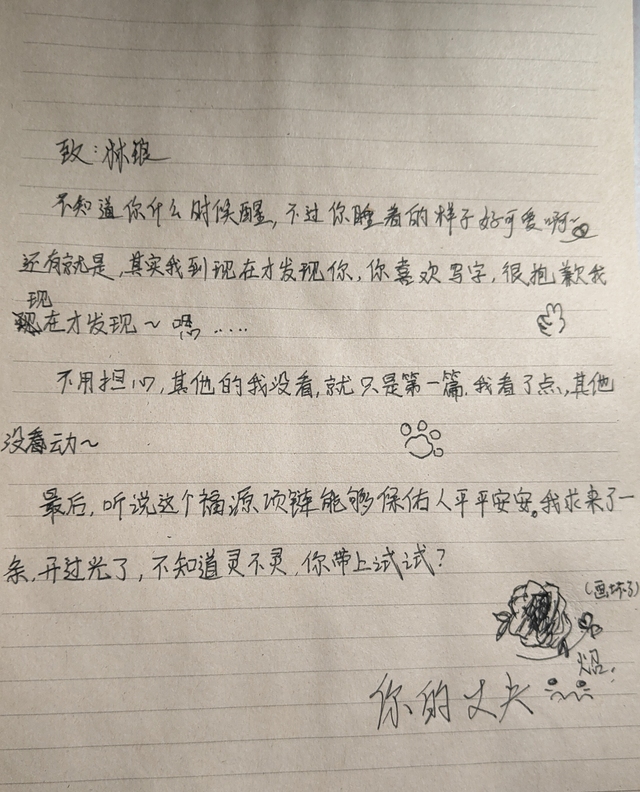 致:林锒
不知道你什么时候醒,不过你睡着的样子好可爱啊~
还有就是,其实我到现在才发现你,你喜欢写字,很抱歉我
现
在才发现~ 唔.....
不用担心,其他的我没看,就只是第一篇.我看了点,其他
没看动~
最后,听说这个福源项链能够保佑人平平安安。我求来了一
条,开过光了,不知道灵不灵,你带上试试?
(画坏了)
你的丈夫